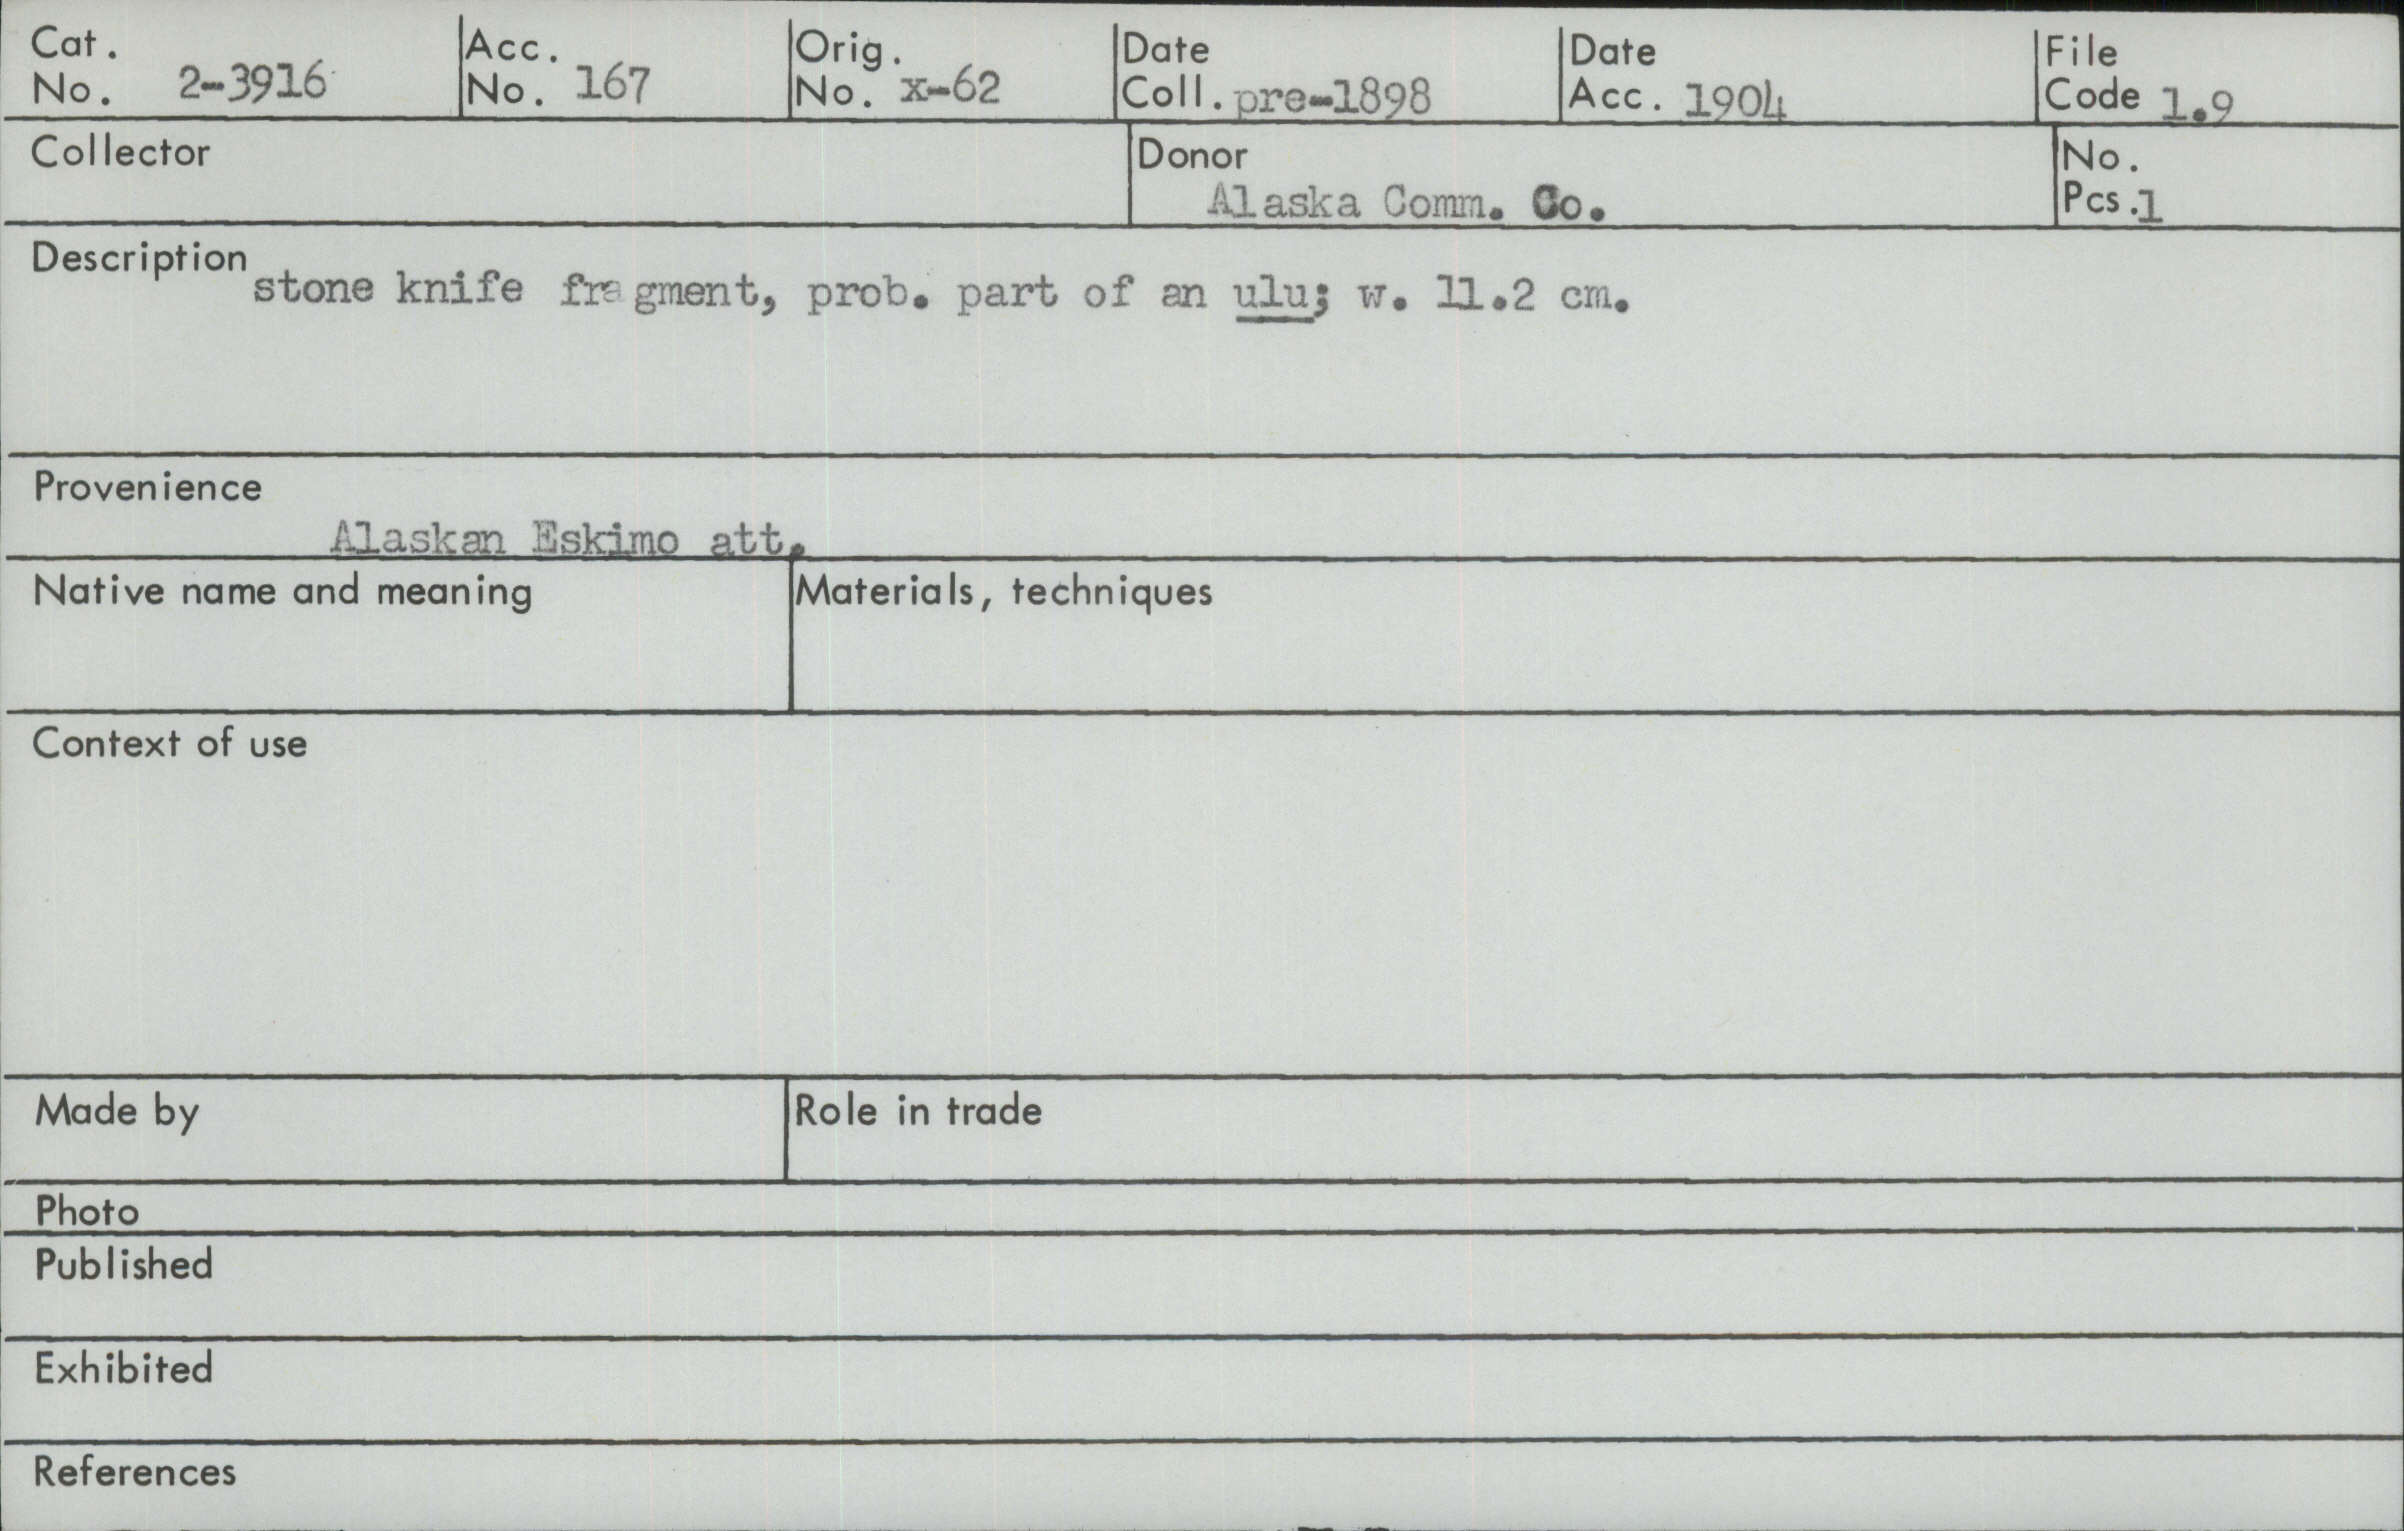 Cat. No. 2-3916 Acc. No. 167 Orig. No. x-62 Date Coll. pre-1898 Date Acc. 1904 File Code 1.9
Collector Donor Alaska Comm. Co. No. Pcs. 1
Description
stone knife fragment, prob. part of an ulu; w. 11.2 cm.
Provenience
Alaskan Eskimo att.
Native name and meaning Materials, techniques
Context of use
Made by Role in trade
Photo
Published
Exhibited
References